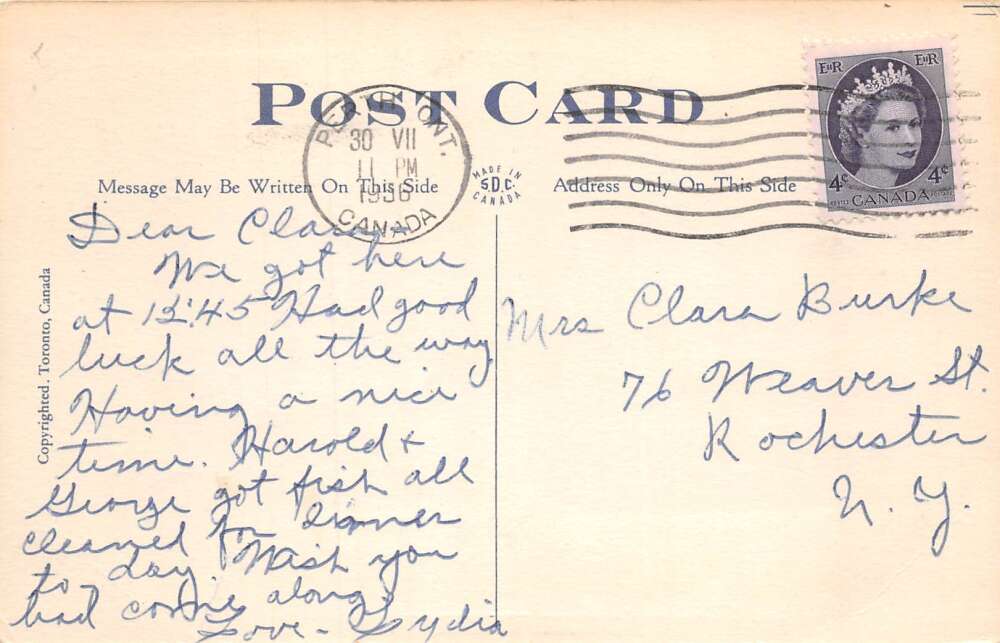 POST CARD
PERTH ONT.
30 VII
11 PM
1956
CANADA
MADE IN
S.D.C.
CANADA
EIIR EIIR
4¢ 4¢
POSTES CANADA POSTAGE
Message May Be Written On This Side
Address Only On This Side
Copyrighted. Toronto, Canada
Dear Clara -
We got here
at 12:45 Had good
luck all the way
Having a nice
time. Harold &
George got fish all
cleaned for dinner
to-day. Wish you
had come along.
Love - Lydia
Mrs Clara Burke
76 Weaver St.
Rochester
N. Y.